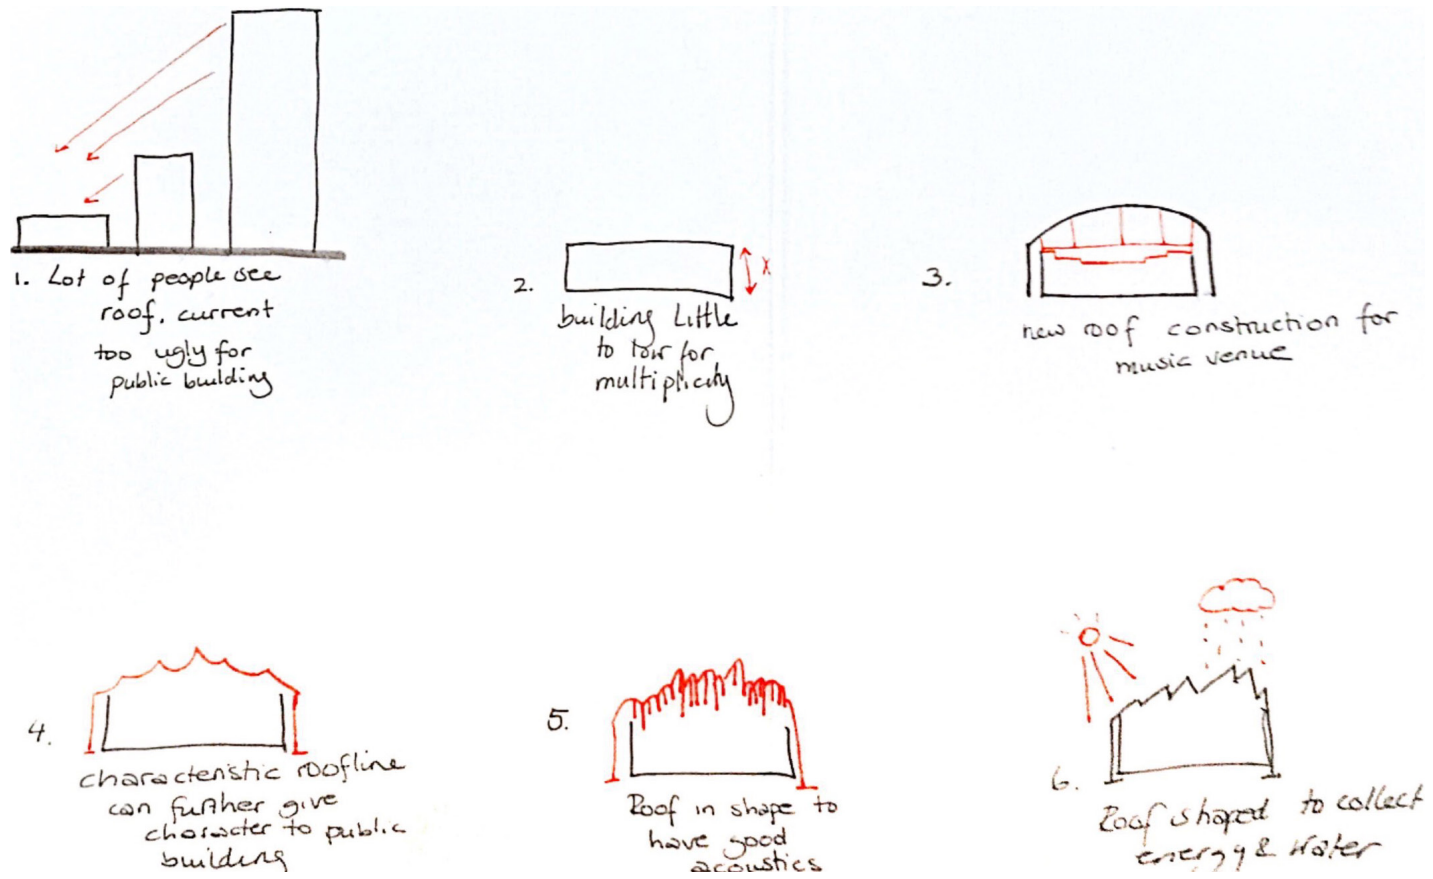 1. Lot of people see
roof. current
too ugly for
public building
2.
x
building Little
to low for
multiplicity
3.
new roof construction for
music venue
4.
characteristic roofline
can further give
character to public
building
5.
Roof in shape to
have good
acoustics
6.
Roof shaped to collect
energy & water